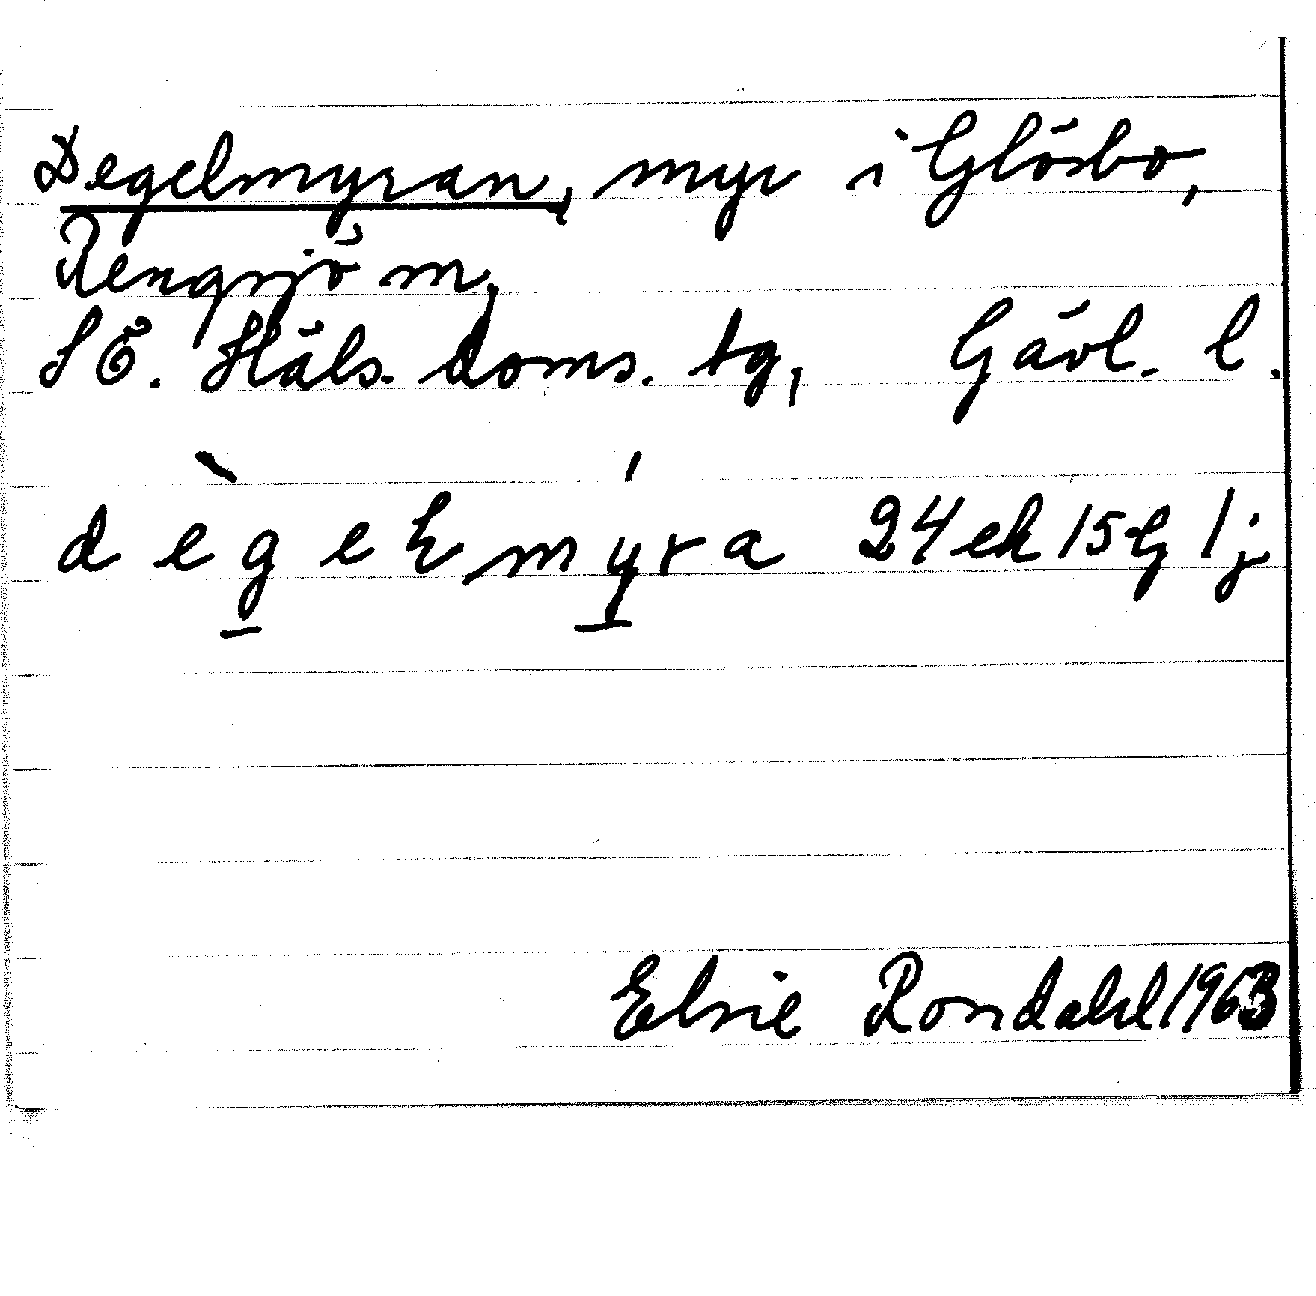 Degelmyran, myr i Glösbo,
Rengsjö sn,
SÖ. Häls. doms. tg, Gävl. l.
dègeɫmýra
Elsie Rondahl 1963